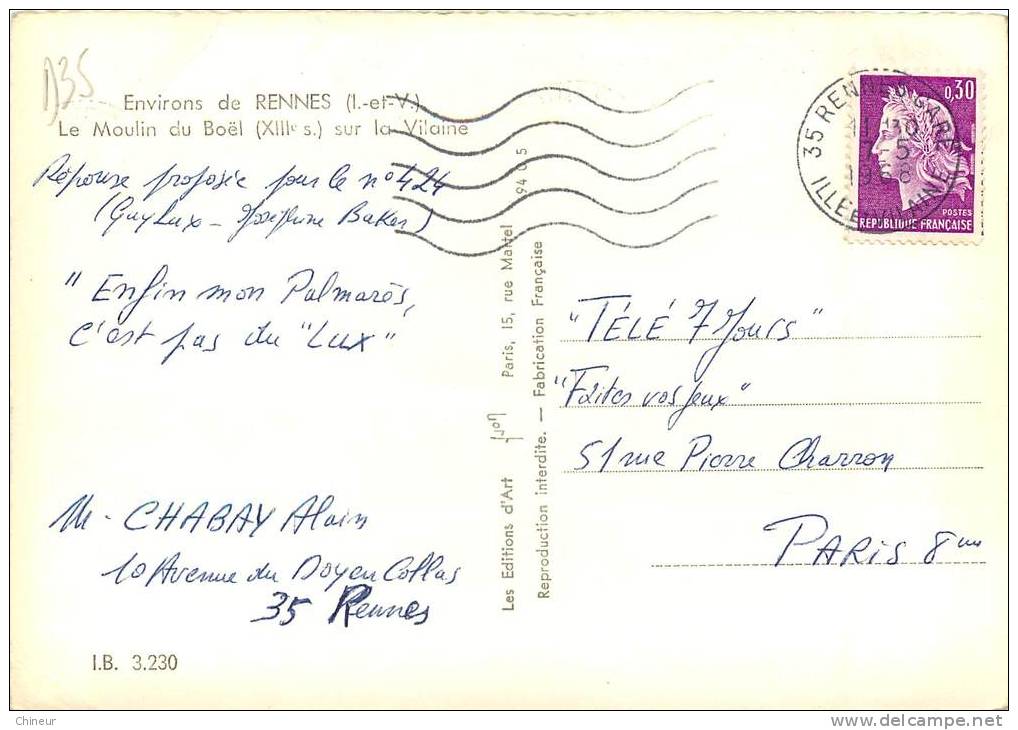 D35
Environs de RENNES (I.-et-V.)
Le Moulin du Boël (XIIIe s.) sur la Vilaine
Réponse proposée pour le n° 424
(Guy Lux - Joséphine Baker)
"Enfin mon Palmarès,
c'est pas du "Lux"
M. CHABAY Alain
10 Avenue du Doyen Collas
35 Rennes
I.B. 3.230
Les Editions d'Art Paris, 15, rue Martel
Reproduction interdite. — Fabrication Française
94 05
35 RENNES GARE
1968
ILLE-ET-VILAINE
0,30
POSTES
REPUBLIQUE FRANÇAISE
"TÉLÉ 7 Jours"
"Faites vos jeux"
51 rue Pierre Charron
PARIS 8me
Chineur
www.delcampe.net